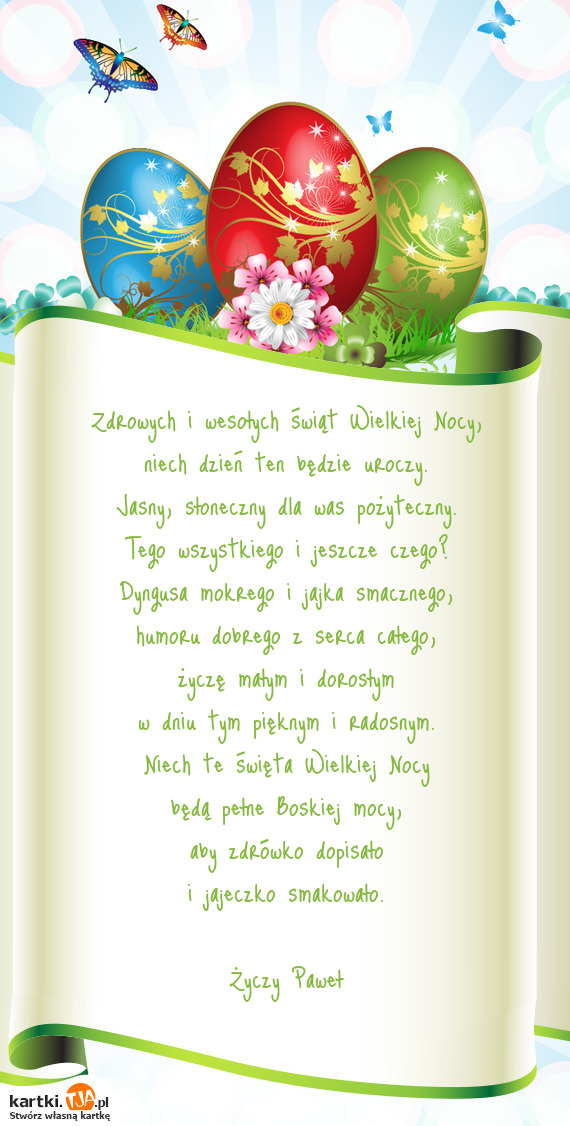 Zdrowych i wesołych świąt Wielkiej Nocy,
niech dzień ten będzie uroczy.
Jasny, słoneczny dla was pożyteczny.
Tego wszystkiego i jeszcze czego?
Dyngusa mokrego i jajka smacznego,
humoru dobrego z serca całego,
życzę małym i dorosłym
w dniu tym pięknym i radosnym.
Niech te święta Wielkiej Nocy
będą pełne Boskiej mocy,
aby zdrówko dopisało
i jajeczko smakowało.
Życzy Paweł
kartki.TJA.pl
Stwórz własną kartkę